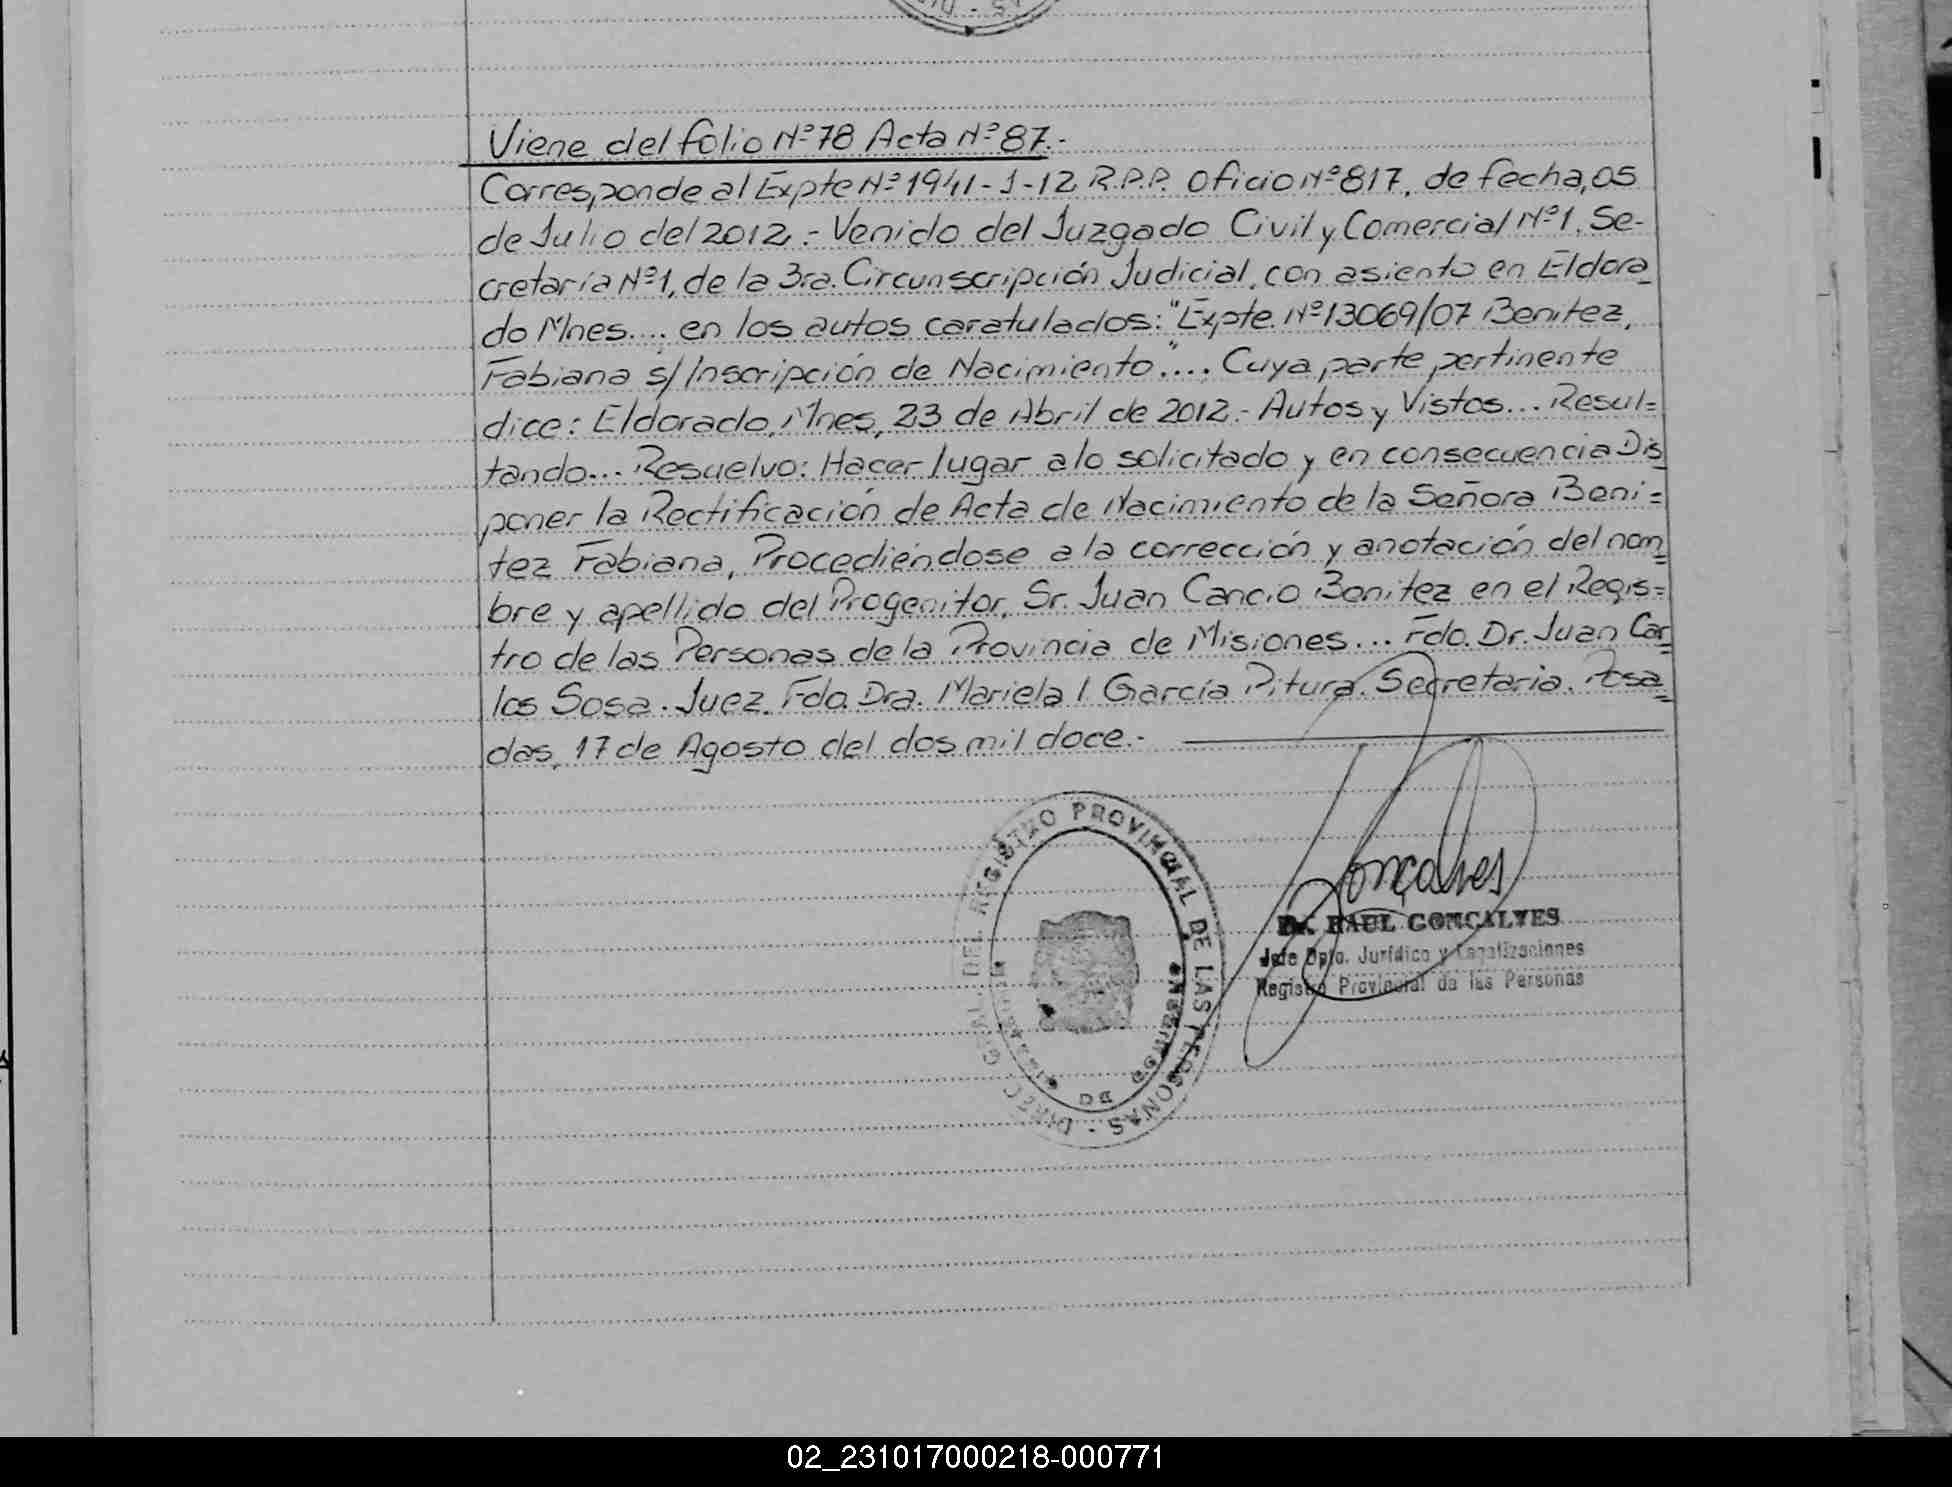 Viene del folio Nº 78 Acta Nº 87.-
Corresponde al Expte Nº 1941-J-12 R.P.P. Oficio Nº 817, de fecha, 05
de Julio del 2012.- Venido del Juzgado Civil y Comercial Nº 1. Se-
cretaría Nº 1, de la 3ra. Circunscripción Judicial, con asiento en Eldora_
do Mnes.... en los autos caratulados: "Expte. Nº 13069/07 Benitez,
Fabiana s/ Inscripción de Nacimiento".... Cuya parte pertinente
dice: Eldorado, Mnes, 23 de Abril de 2012.- Autos y Vistos... Resul=
tando... Resuelvo: Hacer lugar a lo solicitado y en consecuencia Dis
poner la Rectificación de Acta de Nacimiento de la Señora Beni=
tez Fabiana, Procediéndose a la corrección y anotación del nom=
bre y apellido del Progenitor, Sr. Juan Cancio Benitez en el Regis=
tro de las Personas de la Provincia de Misiones... Fdo. Dr. Juan Car=
los Sosa. Juez. Fdo. Dra. Mariela I. García Pitura. Secretaria. Posa=
das, 17 de Agosto del dos mil doce.-
DIREC GRAL. DEL REGISTRO PROVINCIAL DE LAS PERSONAS -
Goncalves
Dr. RAUL GONCALVES
Jefe Dpto. Jurídico y Legalizaciones
Registro Provincial de las Personas
02_231017000218-000771